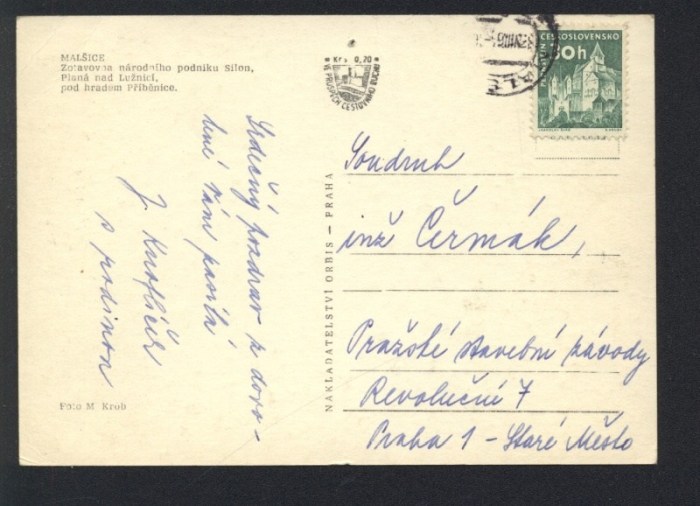 MALŠICE
Zotavovna národního podniku Silon,
Planá nad Lužnicí,
pod hradem Příběnice.
Kčs 0,20
VE PROSPĚCH CESTOVNÍHO RUCHU
ČESKOSLOVENSKO
30 h
Srdečný pozdrav z dovo-
lené Vám posílá
J. Knoflíček
s rodinou
NAKLADATELSTVÍ ORBIS – PRAHA
Soudruh
inž Čermák,
Pražské stavební závody
Revoluční 7
Praha 1 – Staré Město
Foto M Krob